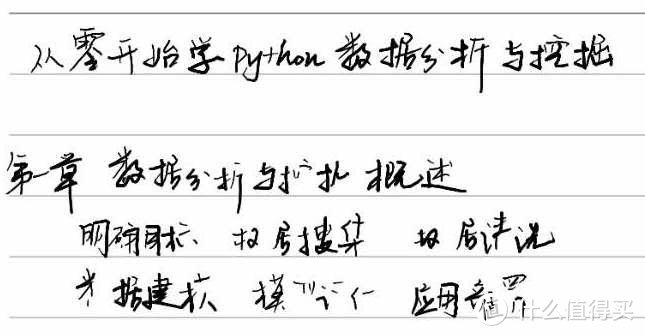 从零开始学Python数据分析与挖掘
第一章 数据分析与挖 概述
明确目标、 数据搜集 数据清洗
数据建模 模 应用部署
什么值得买